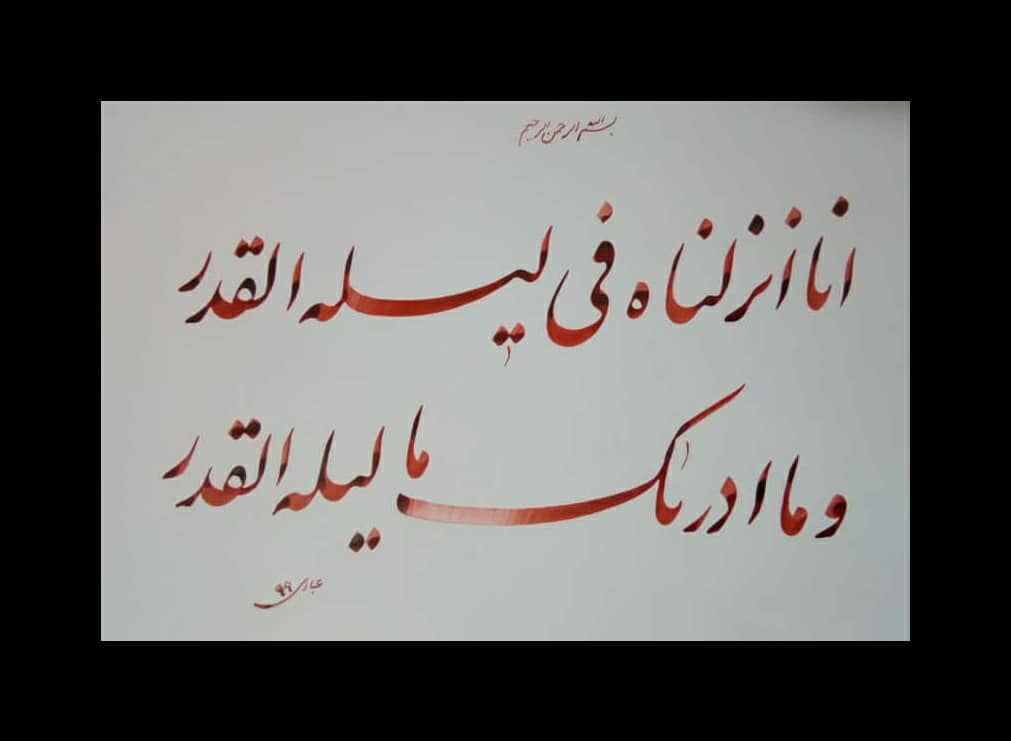 بسم الله الرحمن الرحیم
انا انزلناه فی لیله القدر
و ما ادریٰک ما لیله القدر
عباری ۹۹